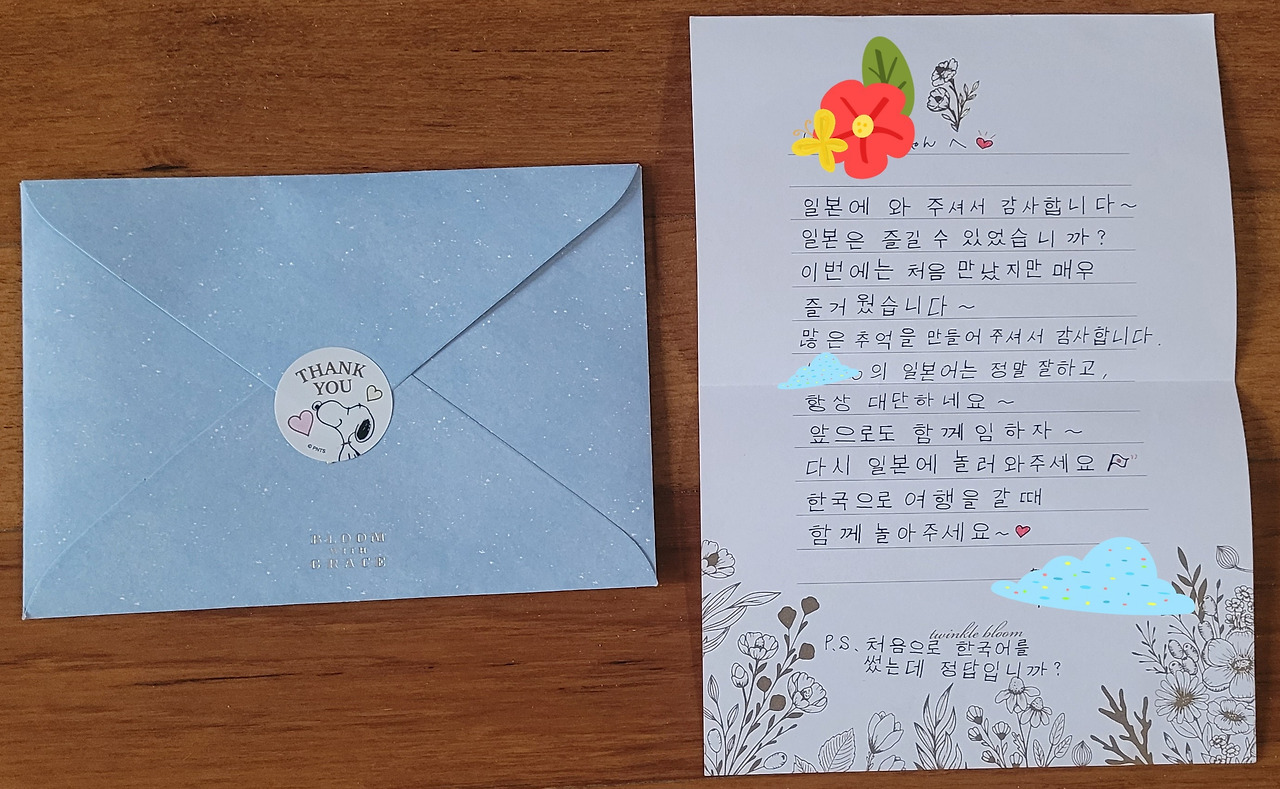 THANK
YOU
© PNTS
BLOOM
WITH
GRACE
ん へ
일본에 와 주셔서 감사합니다~
일본은 즐길 수 있었습니까?
이번에는 처음 만났지만 매우
즐거웠습니다~
많은 추억을 만들어 주셔서 감사합니다.
의 일본어는 정말 잘하고,
항상 대단하네요~
앞으로도 함께임하자~
다시 일본에 놀러와주세요
한국으로 여행을 갈 때
함께 놀아주세요~
twinkle bloom
P.S. 처음으로 한국어를
썼는데 정답입니까?